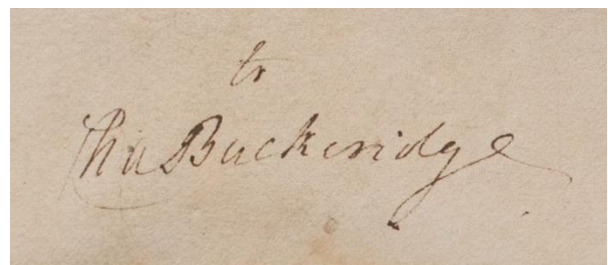 to
Tho Buckeridge